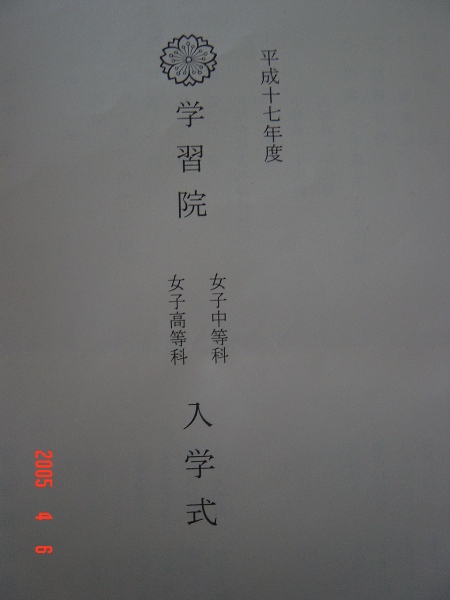 平成十七年度
学習院
女子中等科
女子高等科
入学式
2005 4 6